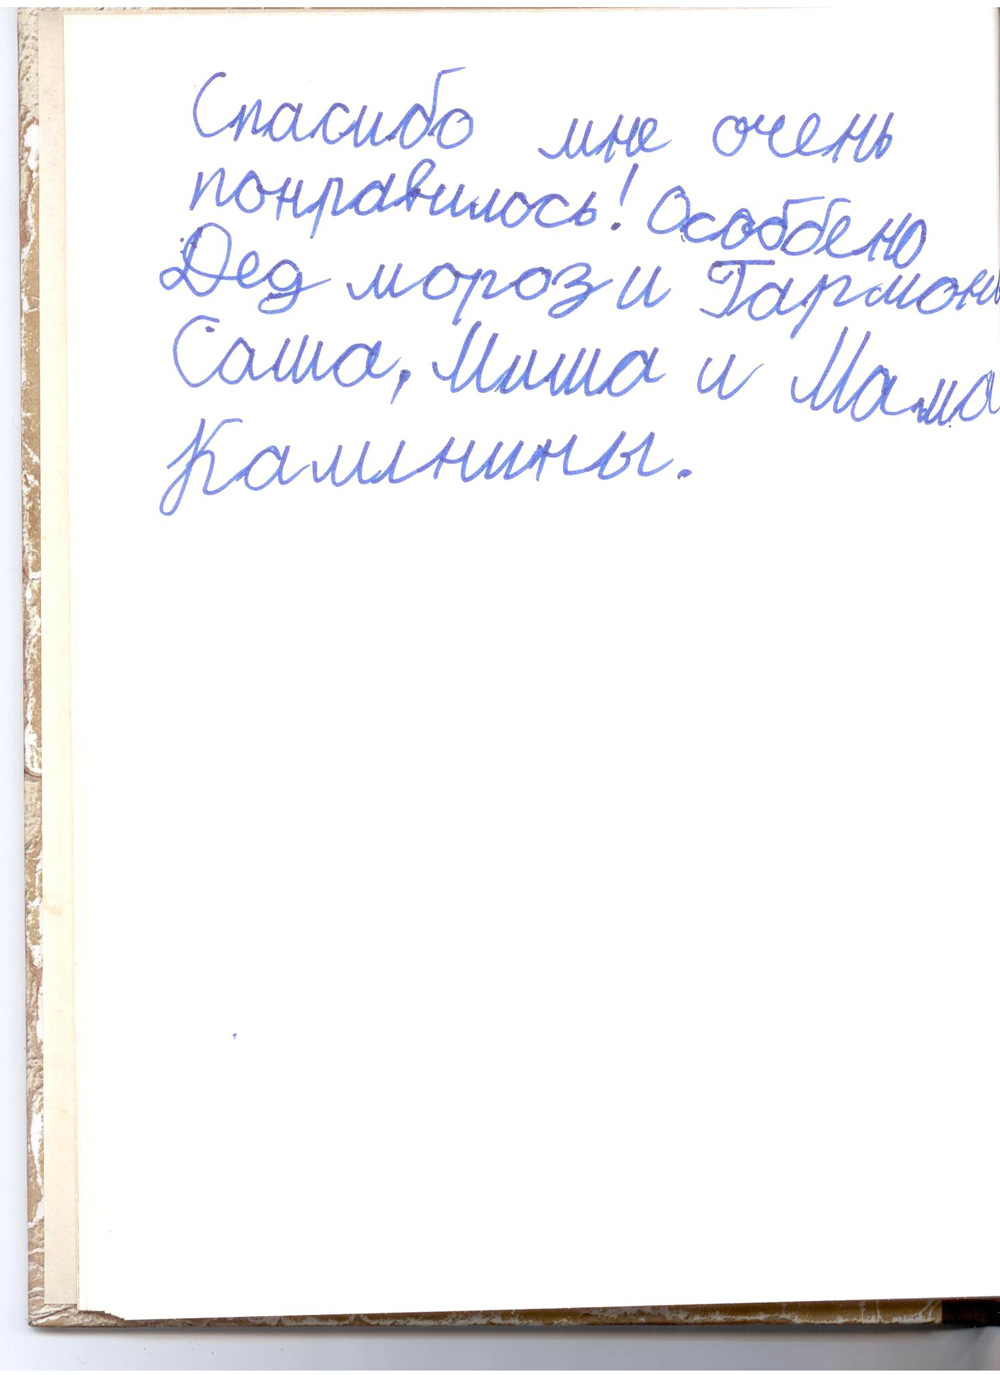 Спасибо мне очень
понравилось! Особбено
Дед мороз и Гармонь
Саша, Миша и Мама
Калинины.